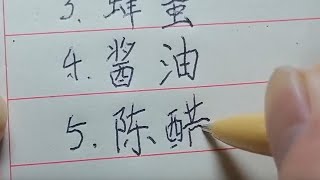 3. 蜂蜜
4. 酱油
5. 陈醋